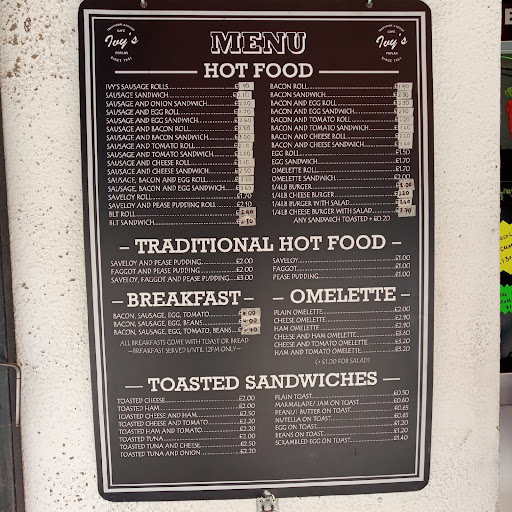 CAFE
Ivy's
POPLAR
MENU
CAFE
Ivy's
POPLAR
HOT FOOD
IVY'S SAUSAGE ROLLS
SAUSAGE SANDWICH
SAUSAGE AND ONION SANDWICH
SAUSAGE AND EGG ROLL
SAUSAGE AND EGG SANDWICH
SAUSAGE AND BACON ROLL
SAUSAGE AND BACON SANDWICH
SAUSAGE AND TOMATO ROLL
SAUSAGE AND TOMATO SANDWICH
SAUSAGE AND CHEESE ROLL
SAUSAGE AND CHEESE SANDWICH
SAUSAGE, BACON AND EGG ROLL
SAUSAGE, BACON AND EGG SANDWICH
SAVELOY ROLL £1.70
SAVELOY AND PEASE PUDDING ROLL £2.10
BLT ROLL
BLT SANDWICH
BACON ROLL
BACON SANDWICH
BACON AND EGG ROLL
BACON AND EGG SANDWICH
BACON AND TOMATO ROLL
BACON AND TOMATO SANDWICH
BACON AND CHEESE ROLL
BACON AND CHEESE SANDWICH
EGG ROLL £1.50
EGG SANDWICH £1.70
OMELETTE ROLL £1.70
OMELETTE SANDWICH £2.00
1/4LB BURGER
1/4LB CHEESE BURGER
1/4LB BURGER WITH SALAD
1/4LB CHEESE BURGER WITH SALAD
ANY SANDWICH TOASTED + £0.20
– TRADITIONAL HOT FOOD –
SAVELOY AND PEASE PUDDING £2.00
FAGGOT AND PEASE PUDDING £2.00
SAVELOY, FAGGOT AND PEASE PUDDING £3.00
SAVELOY £1.00
FAGGOT £1.00
PEASE PUDDING £1.00
– BREAKFAST –
BACON, SAUSAGE, EGG, TOMATO
BACON, SAUSAGE, EGG, BEANS
BACON, SAUSAGE, EGG, TOMATO, BEANS
ALL BREAKFASTS COME WITH TOAST OR BREAD
~BREAKFAST SERVED UNTIL 12PM ONLY~
– OMELETTE –
PLAIN OMELETTE £2.00
CHEESE OMELETTE £2.90
HAM OMELETTE £2.90
CHEESE AND HAM OMELETTE £3.60
CHEESE AND TOMATO OMELETTE £3.20
HAM AND TOMATO OMELETTE £3.20
(+ £1.00 FOR SALAD)
– TOASTED SANDWICHES –
TOASTED CHEESE £2.00
TOASTED HAM £2.00
TOASTED CHEESE AND HAM £2.50
TOASTED CHEESE AND TOMATO £2.20
TOASTED HAM AND TOMATO £2.20
TOASTED TUNA £2.00
TOASTED TUNA AND CHEESE £2.50
TOASTED TUNA AND ONION £2.20
PLAIN TOAST £0.50
MARMALADE/ JAM ON TOAST £0.60
PEANUT BUTTER ON TOAST £0.65
NUTELLA ON TOAST £0.80
EGG ON TOAST £1.20
BEANS ON TOAST £1.20
SCRAMBLED EGG ON TOAST £1.40